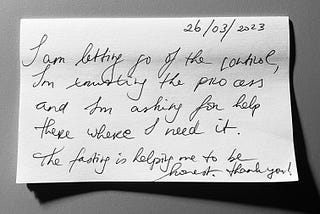 26/03/2023
I am letting go of the control,
I'm trusting the process
and I'm asking for help
there where I need it.
The fasting is helping me to be
honest. Thank you!